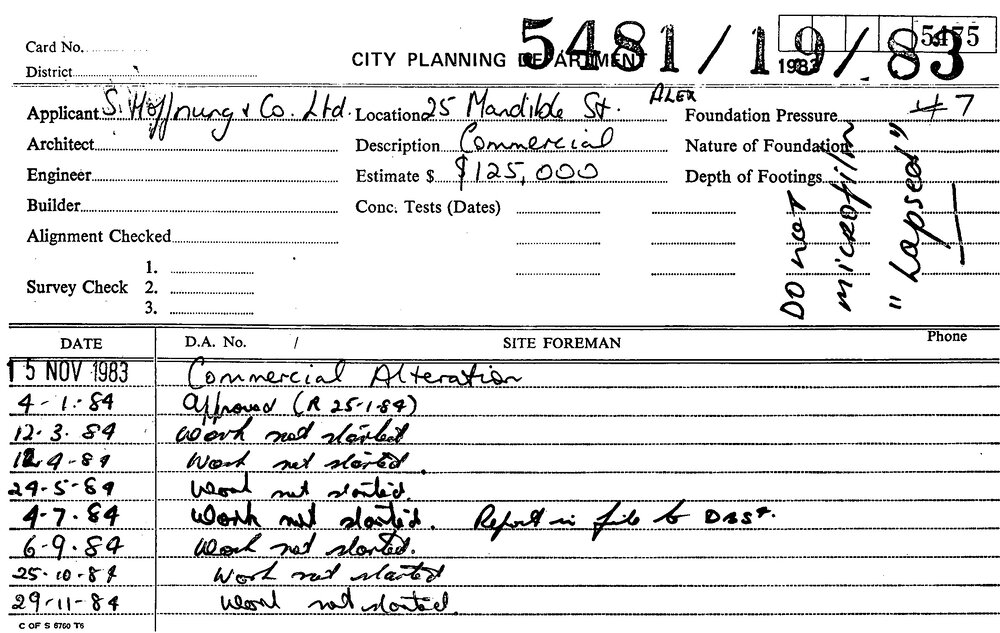 5481/19/83
5475
1983
Card No.
CITY PLANNING DEPARTMENT
District
Applicant S. Hoffnung & Co. Ltd. Location 25 Mandible St. ALEX Foundation Pressure 47
Architect Description Commercial Nature of Foundation
Engineer Estimate $ $125,000 Depth of Footings
Builder Conc. Tests (Dates)
Alignment Checked
Survey Check 1. 2. 3.
DO NOT
microfilm
"Lapsed"
DATE D.A. No. / SITE FOREMAN Phone
15 NOV 1983 Commercial Alteration
4-1-84 Approved (R 25-1-84)
12.3.84 Work not started
12.4.84 Work not started.
24-5-84 Work not started.
4-7.84 Work not started. Report in file to DBS
6-9.84 Work not started.
25-10-84 Work not started
29-11-84 Work not started.
C OF S 6760 T6